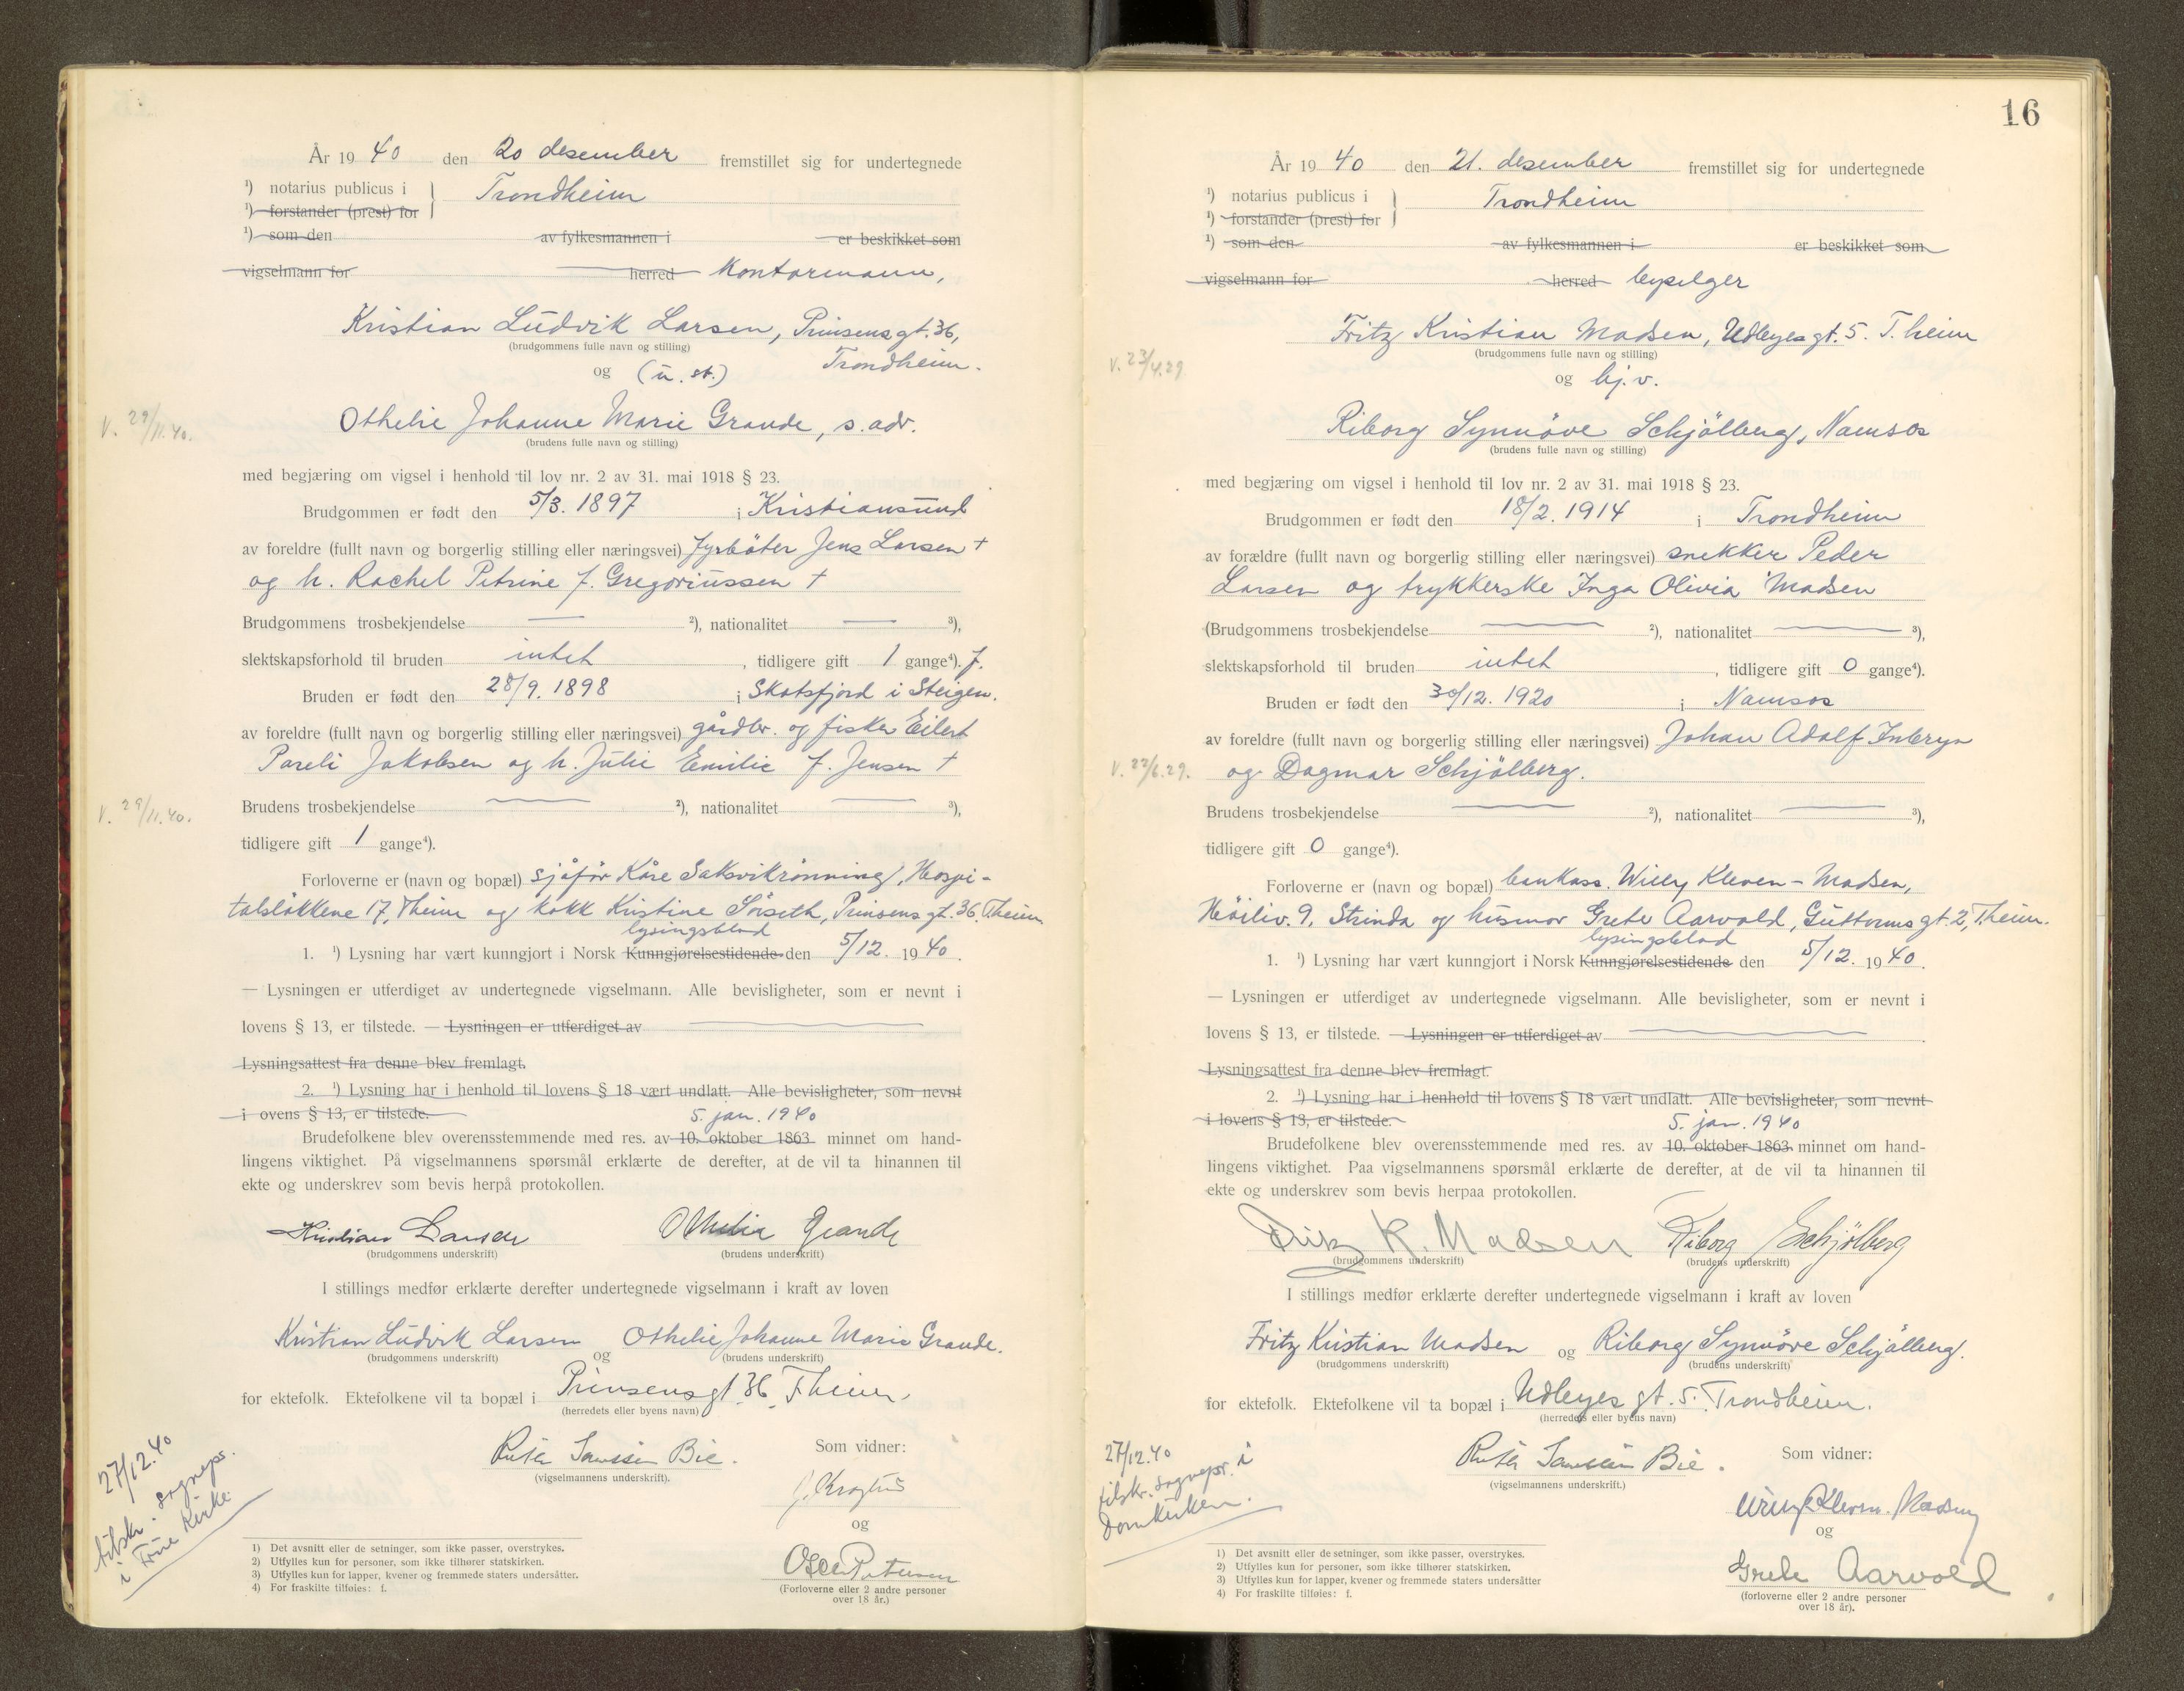 År 1940 den 20 desember fremstillet sig for undertegnede
¹) notarius publicus i Trondheim
¹) forstander (prest) for
¹) som den av fylkesmannen i er beskikket som
vigselmann for herred Kontormann,
Kristian Ludvik Larsen, Prinsens gt. 36,
(brudgommens fulle navn og stilling)
Trondheim.
og (u. st.)
V. 29/11.40.
Othelie Johanne Marie Grande, s. adr.
(brudens fulle navn og stilling)
med begjæring om vigsel i henhold til lov nr. 2 av 31. mai 1918 § 23.
Brudgommen er født den 5/3. 1897 i Kristiansund
av foreldre (fullt navn og borgerlig stilling eller næringsvei) fyrbøter Jens Larsen +
og h. Rachel Petrine f. Gregoriussen +
Brudgommens trosbekjendelse — ²), nationalitet — ³),
slektskapsforhold til bruden intet, tidligere gift 1 gange⁴). f.
Bruden er født den 28/9. 1898 i Skotsfjord i Steigen.
av foreldre (fullt navn og borgerlig stilling eller næringsvei) gårdbr. og fisker Eilert
Pareli Jakobsen og h. Julie Emilie f. Jensen +
V. 29/11.40.
Brudens trosbekjendelse — ²), nationalitet — ³),
tidligere gift 1 gange⁴).
Forloverne er (navn og bopæl) sjåfør Kåre Saksvikrønning, Hospi-
talsløkkene 17, Theim og kokk Kristine Sörseth, Prinsens gt. 36, Theim
lysingsblad
1. ¹) Lysning har vært kunngjort i Norsk Kunngjørelsestidende den 5/12. 1940.
— Lysningen er utferdiget av undertegnede vigselmann. Alle bevisligheter, som er nevnt i
lovens § 13, er tilstede. — Lysningen er utferdiget av
Lysningsattest fra denne blev fremlagt.
2. ¹) Lysning har i henhold til lovens § 18 vært undlatt. Alle bevisligheter, som nevnt
i ovens § 13, er tilstede.
5. jan. 1940
Brudefolkene blev overensstemmende med res. av 10. oktober 1863 minnet om hand-
lingens viktighet. På vigselmannens spørsmål erklærte de derefter, at de vil ta hinannen til
ekte og underskrev som bevis herpå protokollen.
Kristian Larsen Othelie Grande
(brudgommens underskrift) (brudens underskrift)
I stillings medfør erklærte derefter undertegnede vigselmann i kraft av loven
Kristian Ludvik Larsen og Othelie Johanne Marie Grande.
(brudgommens underskrift) (brudens underskrift)
for ektefolk. Ektefolkene vil ta bopæl i Prinsens gt. 36, Theim,
(herredets eller byens navn)
27/12.40
tilskr. sogneps.
i Frue Kirke
Som vidner:
Bie.
(vigselmannens underskrift).
og
(Forloverne eller 2 andre personer
over 18 år.)
1) Det avsnitt eller de setninger, som ikke passer, overstrykes.
2) Utfylles kun for personer, som ikke tilhører statskirken.
3) Utfylles kun for lapper, kvener og fremmede staters undersåtter.
4) For fraskilte tilføies: f.
16
År 1940 den 21. desember fremstillet sig for undertegnede
¹) notarius publicus i Trondheim
¹) forstander (prest) for
¹) som den av fylkesmannen i er beskikket som
vigselmann for herred
V. 23/4.29
Fritz Kristian Madsen, Udbyes gt. 5. T.heim
(brudgommens fulle navn og stilling)
og hj. v.
Riborg Synnöve Schjölberg, Namsos
(brudens fulle navn og stilling)
med begjæring om vigsel i henhold til lov nr. 2 av 31. mai 1918 § 23.
Brudgommen er født den 18/2. 1914 i Trondheim
av forældre (fullt navn og borgerlig stilling eller næringsvei) snekker Peder
Larsen og trykkerske Inga Olivia Madsen
(Brudgommens trosbekjendelse — ²), nationalitet — ³),
slektskapsforhold til bruden intet, tidligere gift 0 gange⁴).
Bruden er født den 30/12. 1920 i Namsos
av foreldre (fullt navn og borgerlig stilling eller næringsvei) Johan Adolf Inbryn
V. 22/6.29. og Dagmar Schjölberg.
Brudens trosbekjendelse — ²), nationalitet — ³),
tidligere gift 0 gange⁴).
Forloverne er (navn og bopæl) bankass. Willy Kleven-Madsen,
Höiliv. 9, Strinda og husmor Grete Aarvold, Guttorms gt. 2, T.heim.
lysingsblad
1. ¹) Lysning har vært kunngjort i Norsk Kunngjørelsestidende den 5/12. 1940.
— Lysningen er utferdiget av undertegnede vigselmann. Alle bevisligheter, som er nevnt i
lovens § 13, er tilstede. — Lysningen er utferdiget av
Lysningsattest fra denne blev fremlagt.
2. ¹) Lysning har i henhold til lovens § 18 vært undlatt. Alle bevisligheter, som nevnt
i lovens § 13, er tilstede.
5. jan. 1940
Brudefolkene blev overensstemmende med res. av 10. oktober 1863 minnet om hand-
lingens viktighet. Paa vigselmannens spørsmål erklærte de derefter, at de vil ta hinannen til
ekte og underskrev som bevis herpaa protokollen.
Fritz K. Madsen Riborg Schjølberg
(brudgommens underskrift) (brudens underskrift)
I stillings medfør erklærte derefter undertegnede vigselmann i kraft av loven
Fritz Kristian Madsen og Riborg Synnöve Schjölberg.
(brudgommens underskrift) (brudens underskrift)
for ektefolk. Ektefolkene vil ta bopæl i Udbyes gt. 5. Trondheim.
(herredets eller byens navn)
27/12.40
tilskr. sognepr. i
Domkirken.
Som vidner:
Bie.
(vigselmannens underskrift.)
Willy Kleven-Madsen
og
Grete Aarvold
(forloverne eller 2 andre personer
over 18 år).
1) Det avsnitt eller de setninger, som ikke passer, overstrykes.
2) Utfylles kun for personer, som ikke tilhører statskirken.
3) Utfylles kun for lapper, kvener og fremmede staters undersåtter
4) For fraskilte tilføies: f.